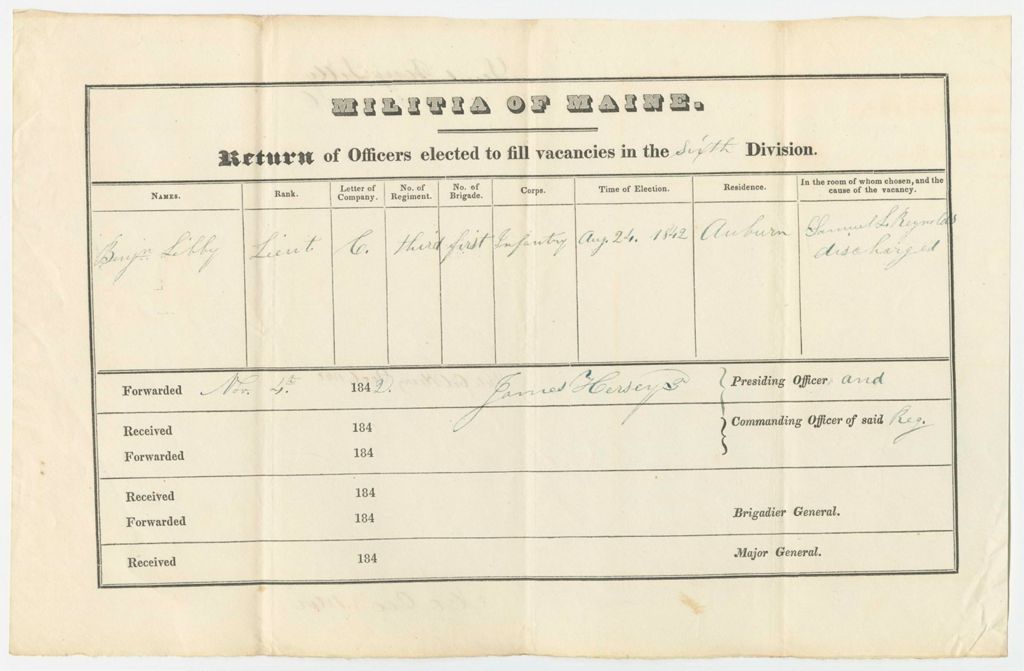 MILITIA OF MAINE.
Return of Officers elected to fill vacancies in the sixth Division.
NAMES. Rank. Letter of Company. No. of Regiment. No. of Brigade. Corps. Time of Election. Residence. In the room of whom chosen, and the cause of the vacancy.
Benjn. Libby Lieut C. third first Infantry Aug. 24. 1842 Auburn Samuel L. Reynolds
discharged
Forwarded Nov. 4th. 1842. James Hersey Presiding Officer and
Received 184 Commanding Officer of said Reg.
Forwarded 184
Received 184
Forwarded 184 Brigadier General.
Received 184 Major General.